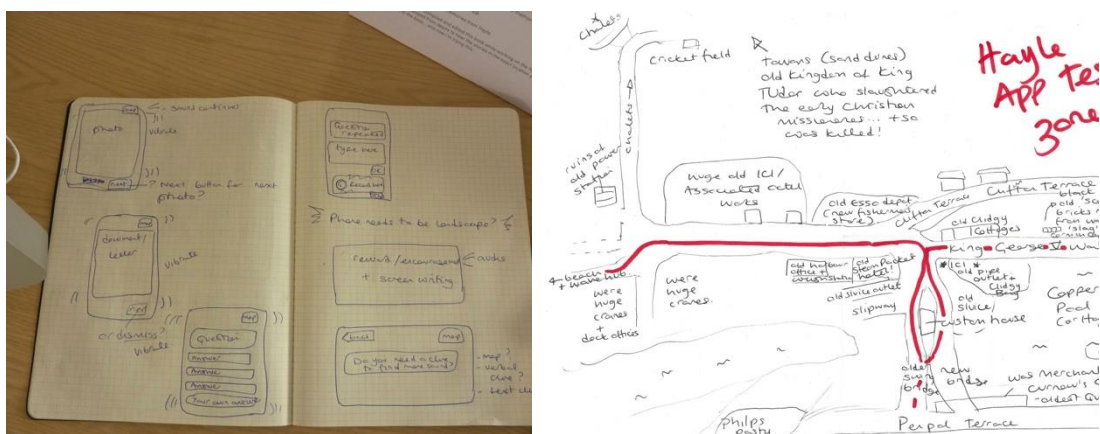 map
- sound continues
photo
vibrate
next
? Next button for next
photo?
map
document/
letter
vibrate
map
or dismiss?
vibrate
map
Question
Answer
Answer
Answer
Your own answer
Question
repeated
type here
OK
Phone needs to be landscape?
reward/encouragement
+ screen writing
audio
back
map
Do you need a clue
to find more sound?
- map?
- verbal
clue?
- text
chalets
cricket field
chalets
towans (sand dunes)
old Kingdom of King
Tudor who slaughtered
the early Christian
missioneries... + so
was killed!
Hayle
App Tes
Zone
ruins of
old power
station
Huge old ICI/
Associated octel
works
old esso depit
(new fishermens
store)
Clifton Terrace
Clifton Terrace
old Clidgy
Cottages
black
bricks
King George V Wal
beach
+ wave hub
were
huge
cranes
+
dock offices
were
huge
cranes
old harbour
office +
old
steam packet
hotel!
old sluice outlet
slipway
ICI
old pipe
outlet
Clidgy
old
sluice/
custom house
Copper
Pool
older
swing
bridge
new
bridge
was merchant
Curnow's
- oldest
Philps
Pasty
Penpol Terrace